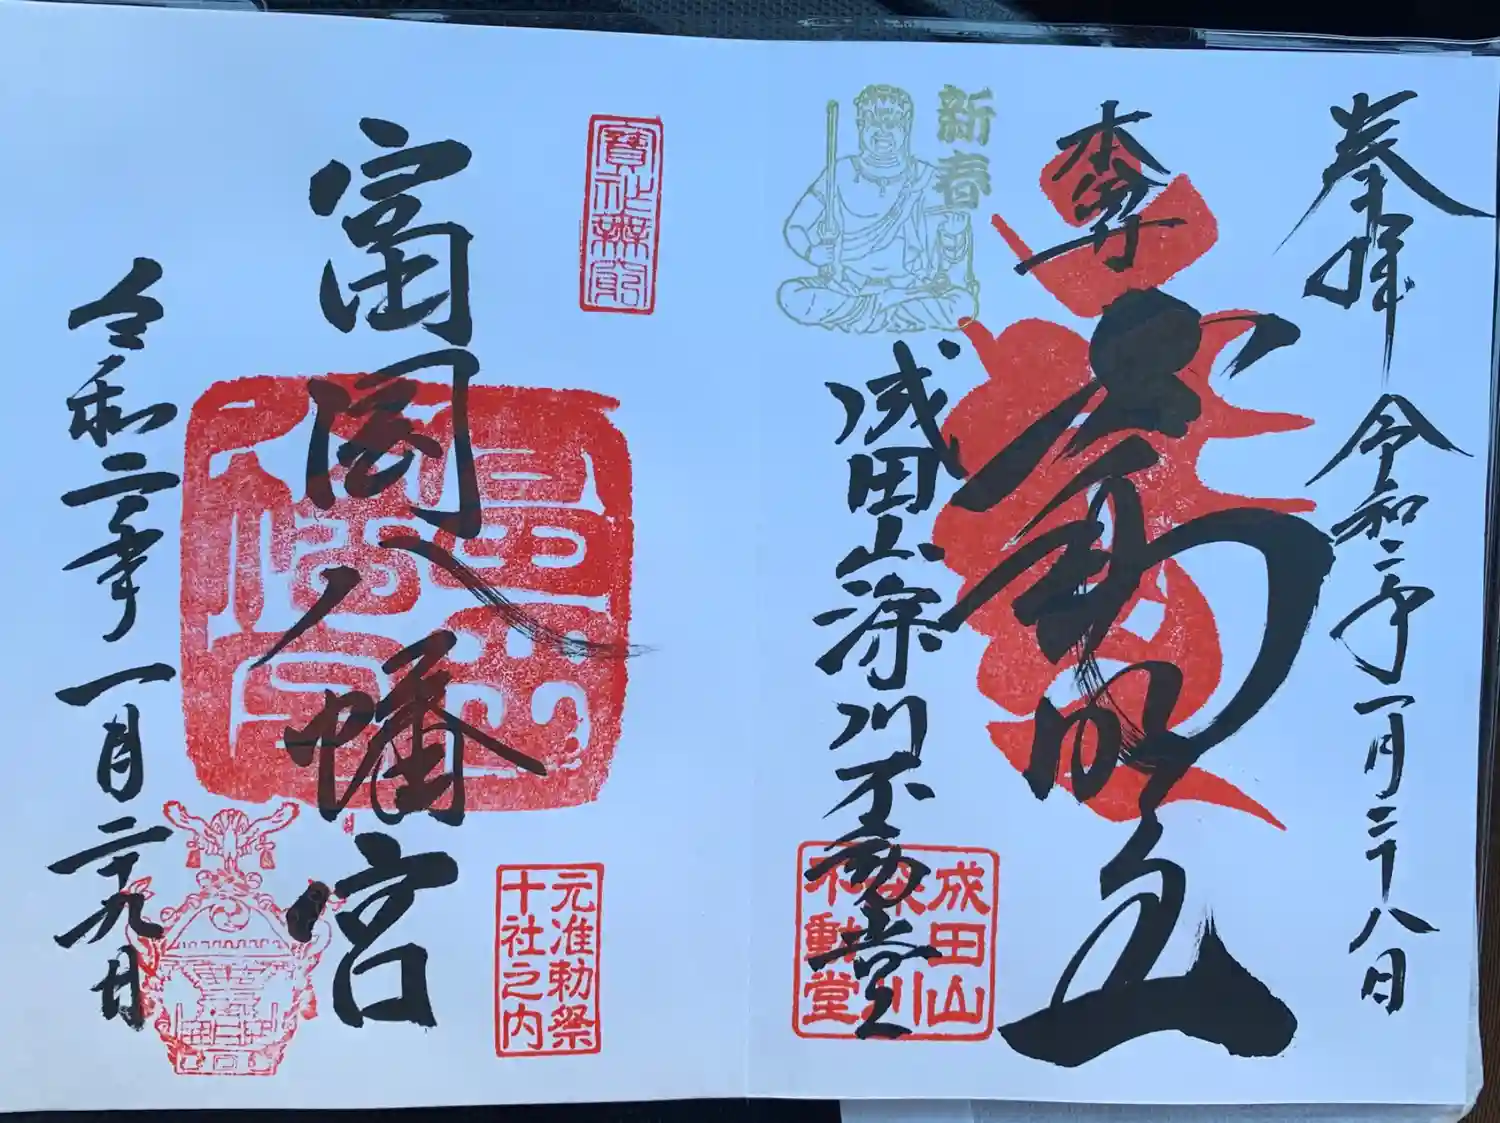 奉拝
令和二年一月二十八日
本尊
不動明王
新春
成田山深川不動堂
成田山
深川
不動堂
寶祚無窮
富岡八幡宮
元准勅祭
十社之内
令和二年一月二十九日